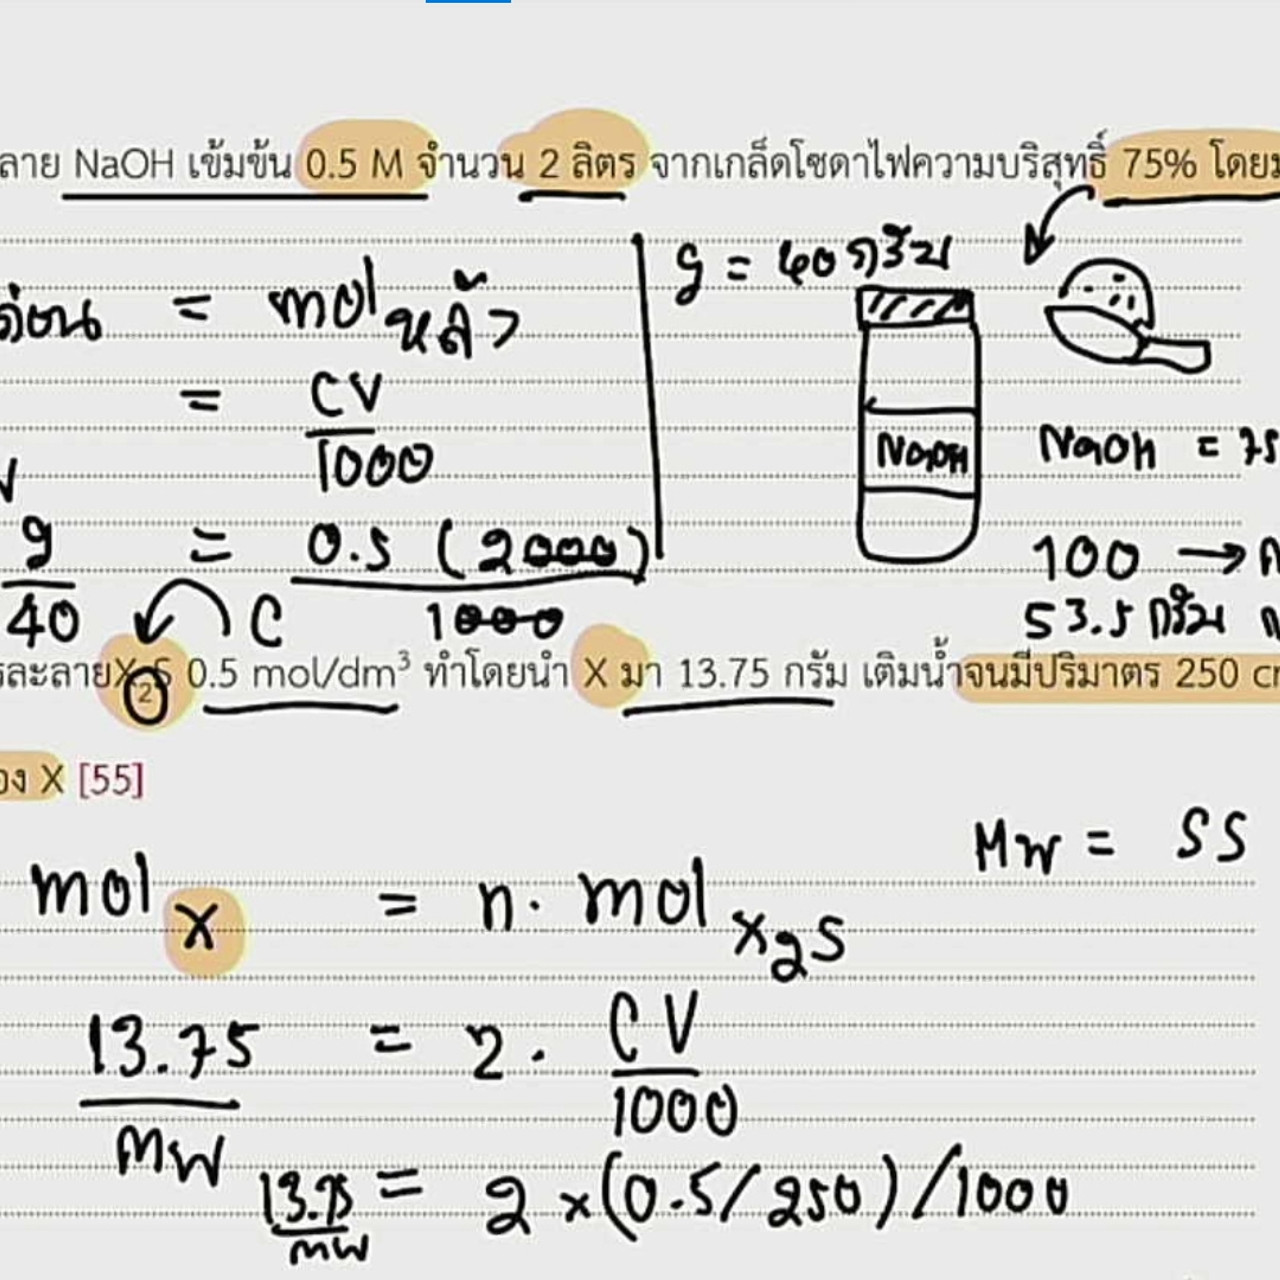 ลาย NaOH เข้มข้น 0.5 M จำนวน 2 ลิตร จากเกล็ดโซดาไฟความบริสุทธิ์ 75% โดยม
ก่อน = mol หลัง
g = 40 กรัม
= CV
1000
NaOH
NaOH = 75
g = 0.5 (2000)
40 1000
100 →
53.5 กรัม
C
รละลาย X₂S 0.5 mol/dm³ ทำโดยนำ X มา 13.75 กรัม เติมน้ำจนมีปริมาตร 250 cm
อง X [55]
MW = 55
mol X = n. mol X₂S
13.75 = 2. CV
MW 1000
13.75 = 2 x (0.5/250)/1000
MW